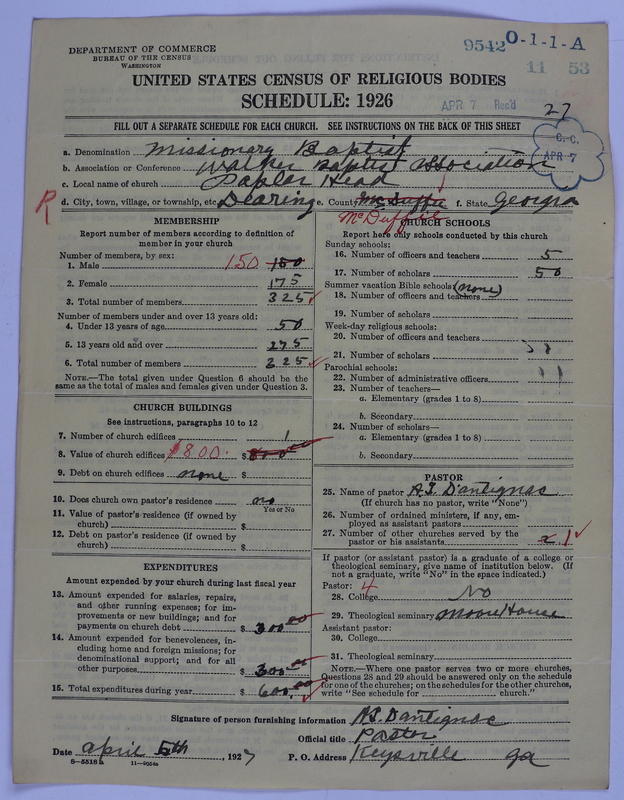 DEPARTMENT OF COMMERCE
BUREAU OF THE CENSUS
WASHINGTON
9542 O-1-1-A
11 53
UNITED STATES CENSUS OF RELIGIOUS BODIES
SCHEDULE: 1926
APR 7 Rec'd
27
FILL OUT A SEPARATE SCHEDULE FOR EACH CHURCH. SEE INSTRUCTIONS ON THE BACK OF THIS SHEET
C. C.
APR 7
a. Denomination Missionary Baptist
b. Association or Conference Walker Baptist Association
c. Local name of church Poplar Head
R d. City, town, village, or township, etc. Dearing e. County McDuffie f. State Georgia
McDuffie
MEMBERSHIP
Report number of members according to definition of
member in your church
Number of members, by sex:
1. Male 150 150
2. Female 175
3. Total number of members 325
Number of members under and over 13 years old:
4. Under 13 years of age 50
5. 13 years old and over 275
6. Total number of members 325
NOTE.—The total given under Question 6 should be the
same as the total of males and females given under Question 3.
CHURCH BUILDINGS
See instructions, paragraphs 10 to 12
7. Number of church edifices 1
8. Value of church edifices $800. $
9. Debt on church edifices none $
10. Does church own pastor's residence no
Yes or No
11. Value of pastor's residence (if owned by
church) $
12. Debt on pastor's residence (if owned by
church) $
EXPENDITURES
Amount expended by your church during last fiscal year
13. Amount expended for salaries, repairs,
and other running expenses; for im-
provements or new buildings; and for
payments on church debt $ 300.00
14. Amount expended for benevolences, in-
cluding home and foreign missions; for
denominational support; and for all
other purposes $ 300.00
15. Total expenditures during year $ 600.00
CHURCH SCHOOLS
Report here only schools conducted by this church
Sunday schools:
16. Number of officers and teachers 5
17. Number of scholars 50
Summer vacation Bible schools: (none)
18. Number of officers and teachers
19. Number of scholars
Week-day religious schools:
20. Number of officers and teachers
21. Number of scholars
Parochial schools:
22. Number of administrative officers
23. Number of teachers—
a. Elementary (grades 1 to 8)
b. Secondary
24. Number of scholars—
a. Elementary (grades 1 to 8)
b. Secondary
PASTOR
25. Name of pastor A.J. D'Antignac
(If church has no pastor, write "None")
26. Number of ordained ministers, if any, em-
ployed as assistant pastors
27. Number of other churches served by the
pastor or his assistants 1
If pastor (or assistant pastor) is a graduate of a college or
theological seminary, give name of institution below. (If
not a graduate, write "No" in the space indicated.)
Pastor: 4
28. College No
29. Theological seminary Moore House
Assistant pastor:
30. College
31. Theological seminary
NOTE.—Where one pastor serves two or more churches,
Questions 28 and 29 should be answered only on the schedule
for one of the churches; on the schedules for the other churches,
write "See schedule for church."
Signature of person furnishing information A.J. D'Antignac
Official title Pastor
Date april 5th, 1927 P. O. Address Keysville ga
8—5518a 11—9954a